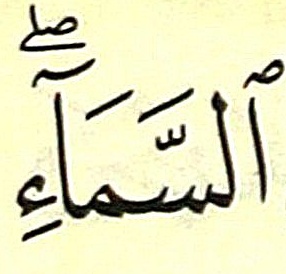 ٱلسَّمَآءِۖ